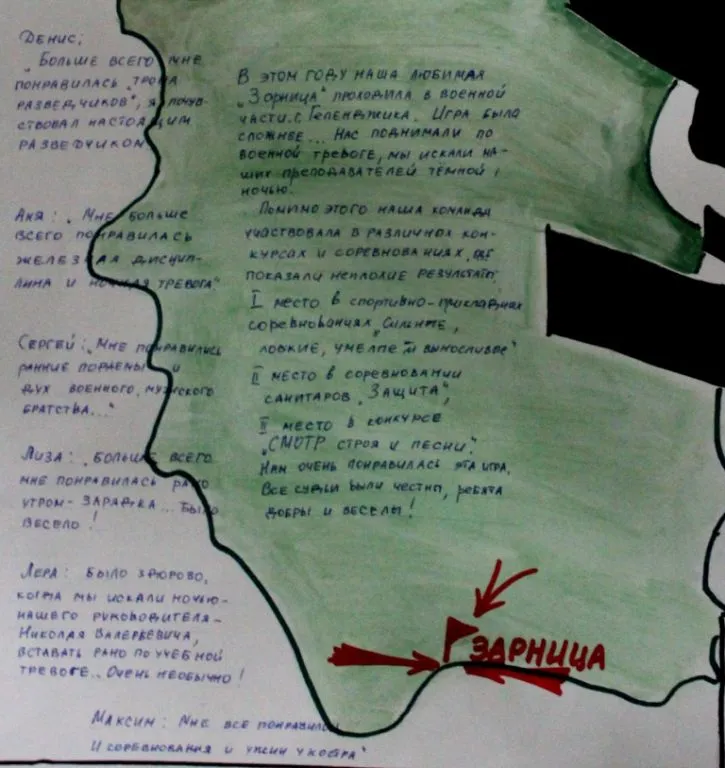 Денис:
„Больше всего мне
понравилась „тропа
разведчиков", я почув-
ствовал настоящим
разведчиком
Аня: „Мне больше
всего понравилась
железная дисцип-
лина и ночная тревога"
Сергей: „Мне понравились
ранние подъемы и
дух военного, мужского
братства..."
Лиза: „Больше всего
мне понравилась рано
утром- зарядка... Было
весело!
Лера: Было здорово,
когда мы искали ночью-
нашего руководителя-
Николая Валерьевича,
вставать рано по учебной
тревоге.. Очень необычно!
Максим: Мне все понравилось
И соревнования и ужин у костра"
В этом году наша любимая
„Зарница" проходила в военной
части г. Геленджика. Игра была
сложнее... Нас поднимали по
военной тревоге, мы искали на-
ших преподавателей тёмной
ночью.
Помимо этого наша команда
участвовала в различных кон-
курсах и соревнованиях, где
показали неплохие результаты.
I место в спортивно-прикладных
соревнованиях „Сильные,
ловкие, умелые и выносливые"
II место в соревновании
санитаров „Защита",
II место в конкурсе
„Смотр строя и песни".
Нам очень понравилась эта игра.
Все судьи были честны, ребята
добры и веселы!
ЗАРНИЦА